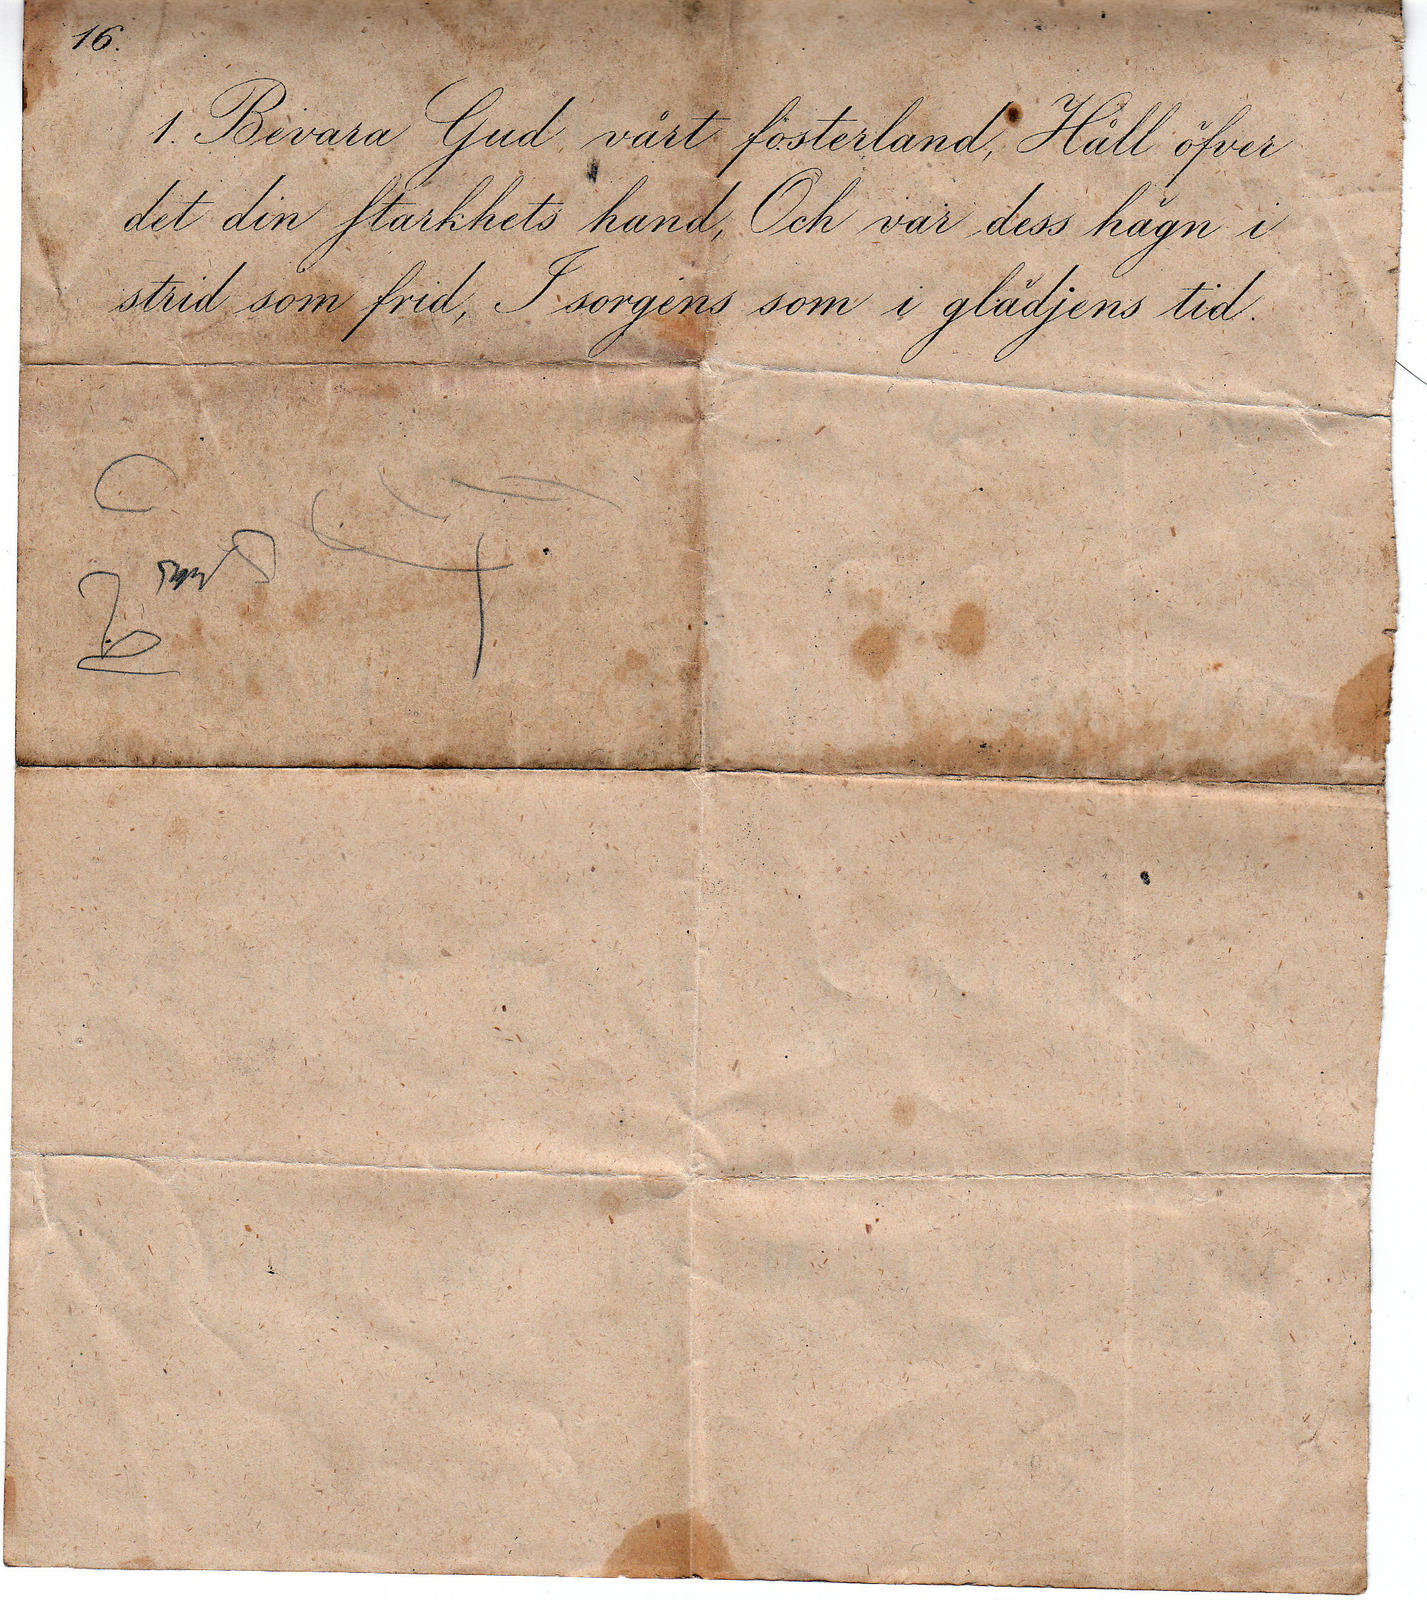 16.
1. Bevara Gud vårt fosterland, Håll öfver
det din starkhets hand, Och var dess hägn i
strid som frid, I sorgens som i glädjens tid.